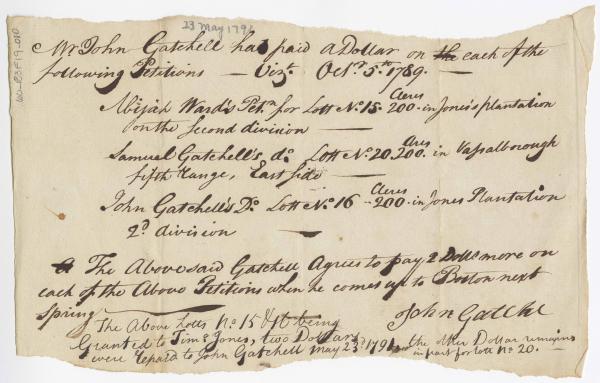 23 May 1791
60-23F19-010
Mr. John Gatchell has paid a Dollar on the each of the
following Petitions — Vizt. Octr. 5th. 1789. —
Abijah Ward's Petn. for Lott No. 15 - 200 Acres - in Jones's plantation
on the Second division —
Samuel Gatchell's do. Lott No. 20. 200 Acres. in Vassalborough
fifth Range, East side —
John Gatchell's Do. Lott No. 16 - 200 Acres - in Jones Plantation
2d. division —
The Above said Gatchell Agrees to pay 2 Dolls more on
each of the Above Petitions when he comes up to Boston next
Spring
John Gatchel
The Above lotts No. 15 & 16 being
Granted to Tims. Jones, two Dollars
were repaid to John Gatchell May 23d. 1791, the other Dollar remains
in part for lott No. 20.